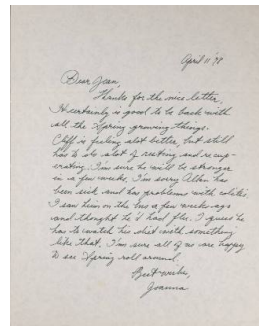 April 11 '78
Dear Jean,
Thanks for the nice letter.
It certainly is good to be back with
all the Spring growing things.
Cliff is feeling alot better, but still
has to do alot of resting and recup-
erating. I'm sure he will be stronger
in a few weeks. I'm sorry Alban has
been sick and has problems with colitis.
I saw him on the bus a few weeks ago
and thought he'd had flu. I guess he
has to watch his diet with something
like that. I'm sure all of us are happy
to see Spring roll around.
Best wishes,
Joanna